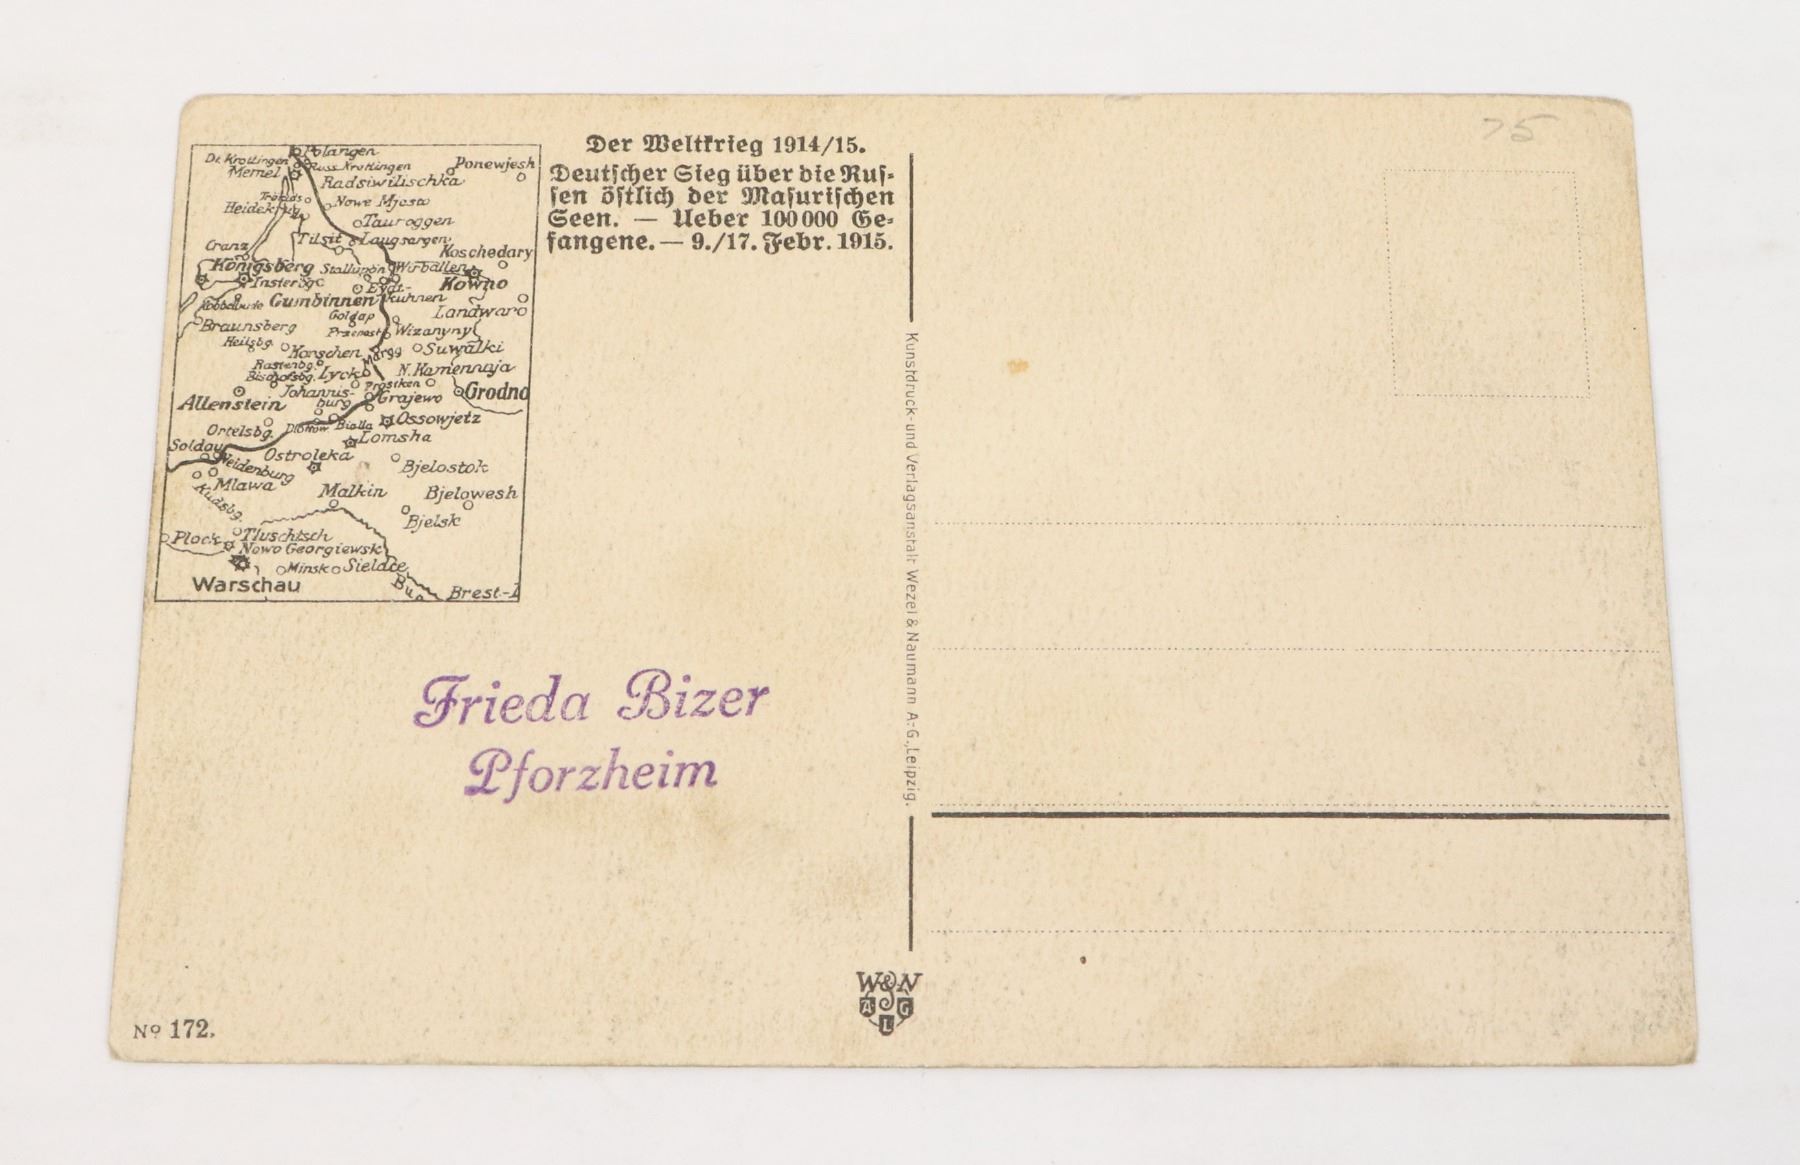 75
Der Weltkrieg 1914/15.
Deutscher Sieg über die Rus-
sen östlich der Masurischen
Seen. — Ueber 100 000 Ge-
fangene. — 9./17. Febr. 1915.
Polangen
Dt. Krottingen
Russ. Krottingen
Ponewjesh
Memel
Radsiwilischka
Nowe Mjasto
Heidekrug
Tauroggen
Tilsit
Laugsargen
Cranz
Koschedary
Königsberg
Stallupön
Wirballen
Insterbg
Eydt-
kuhnen
Kowno
Gumbinnen
Landwaro
Goldap
Braunsberg
Wizanyny
Heilsbg.
Korschen
Margg
Suwalki
Rastenbg.
Bischofsbg.
Lyck
N. Kamennaja
Prostken
Johannis-
burg
Grajewo
Grodno
Allenstein
Ossowjetz
Ortelsbg.
Bialla
Lomsha
Soldau
Ostroleka
Neidenburg
Bjelostok
Mlawa
Malkin
Bjelowesh
Bjelsk
Plock
Tluschtsch
Nowo Georgiewsk
Minsk
Sieldce
Warschau
Bug
Brest-L
Kunstdruck- und Verlagsanstalt Wezel & Naumann A.-G., Leipzig.
Frieda Bizer
Pforzheim
W&N
A G
L
No 172.